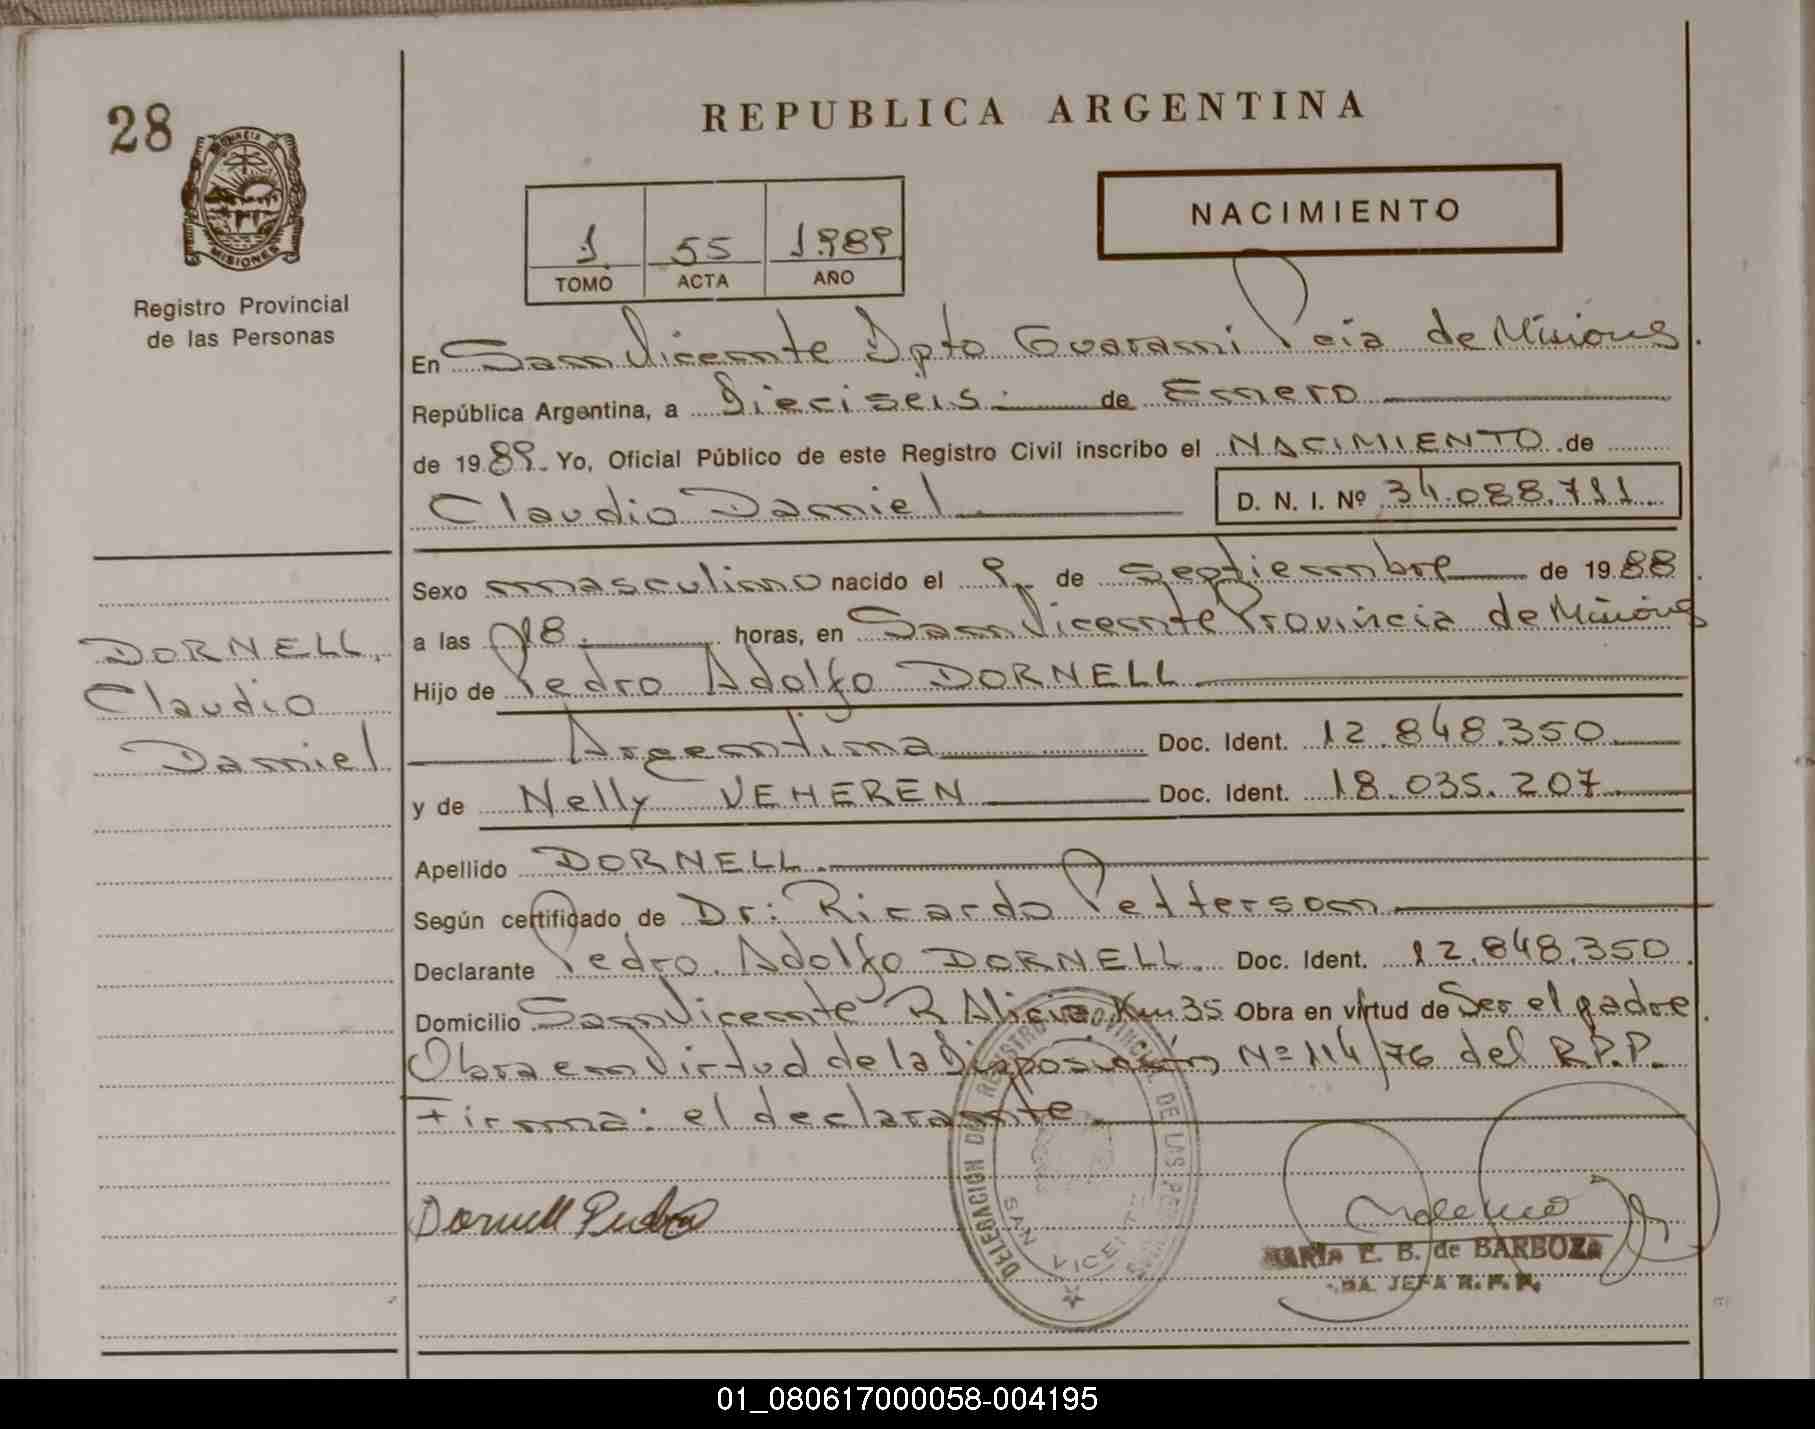 28
PROVINCIA DE
MISIONES
Registro Provincial
de las Personas
DORNELL,
Claudio
Daniel
REPUBLICA ARGENTINA
NACIMIENTO
1 55 1.989
TOMO ACTA AÑO
En San Vicente Dpto Guarani Pcia de Misiones.
República Argentina, a Dieciseis.- de Enero
de 1989. Yo, Oficial Público de este Registro Civil inscribo el NACIMIENTO de
Claudio Daniel D. N. I. Nº 34.088.711
Sexo masculino nacido el 9 de Septiembre de 1988
a las 18. horas, en San Vicente Provincia de Misiones
Hijo de Pedro Adolfo DORNELL
Argentina Doc. Ident. 12.848.350
y de Nelly VEHEREN Doc. Ident. 18.035.207
Apellido DORNELL.
Según certificado de Dr: Ricardo Petterson
Declarante Pedro Adolfo DORNELL. Doc. Ident. 12.848.350
Domicilio San Vicente R Alicia Km 35 Obra en virtud de Ser el padre.
Obra en Virtud de la Disposición Nº 114/76 del R.P.P.
Firma: el declarante
DELEGACION DEL REGISTRO PROVINCIAL DE LAS
SAN VICENTE
Dornell Pedro
MARIA E. B. de BARBOZA
JEFA R. P. P.
01_080617000058-004195